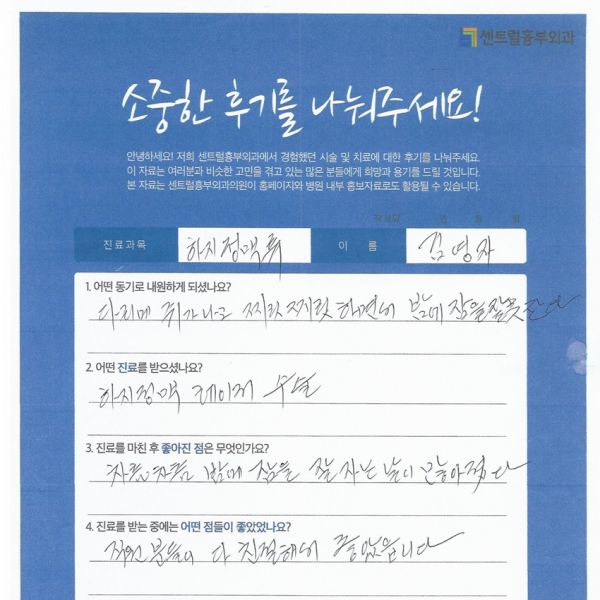 센트럴흉부외과
소중한 후기를 나눠주세요!
안녕하세요! 저희 센트럴흉부외과에서 경험했던 시술 및 치료에 대한 후기를 나눠주세요.
이 자료는 여러분과 비슷한 고민을 겪고 있는 많은 분들에게 희망과 용기를 드릴 것입니다.
본 자료는 센트럴흉부외과의원이 홈페이지와 병원 내부 홍보자료로도 활용될 수 있습니다.
작성일 년 월 일
진료과목 하지정맥류 이 름 김영자
1. 어떤 동기로 내원하게 되셨나요?
다리에 쥐가나고 찌릿찌릿 하면서 밤에 잠을 잘못잔다
2. 어떤 진료를 받으셨나요?
하지정맥 레이저 수술
3. 진료를 마친 후 좋아진 점은 무엇인가요?
차츰차츰 밤에 잠을 잘 자는 날이 많아졌다
4. 진료를 받는 중에는 어떤 점들이 좋았었나요?
직원 분들이 다 친절해서 좋았습니다